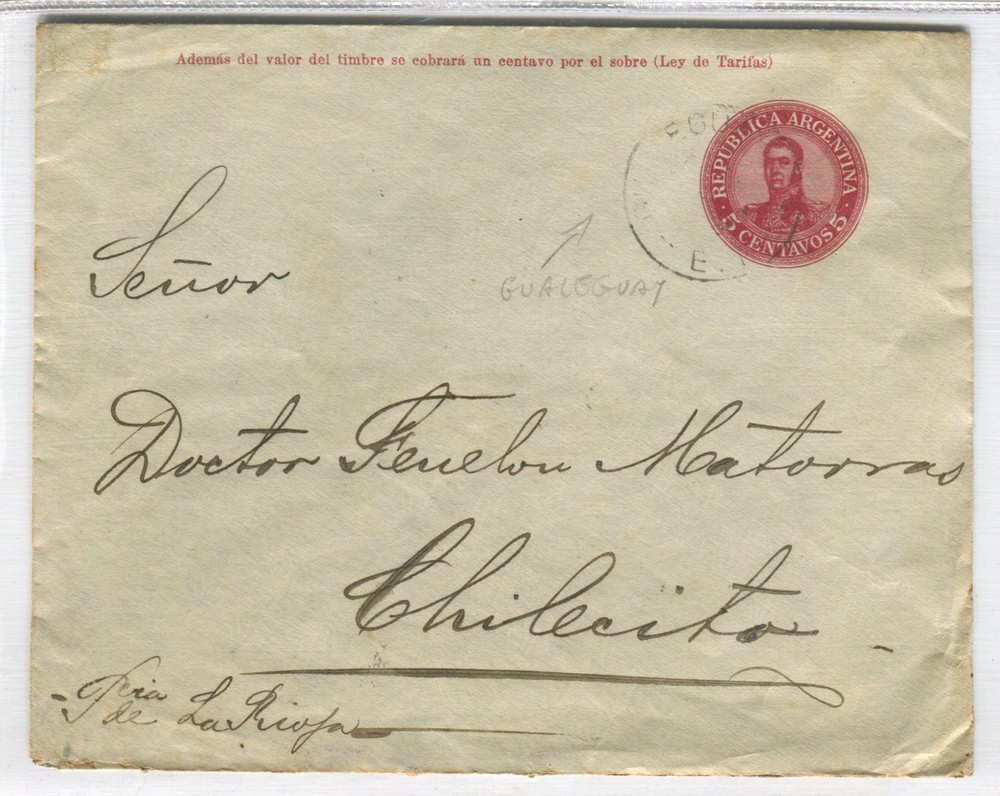 Además del valor del timbre se cobrará un centavo por el sobre (Ley de Tarifas)
REPUBLICA ARGENTINA
5 CENTAVOS 5
EGU
E.
GUALEGUAY
Señor
Doctor Fenelon Matorras
Chilecito
Pcia
de La Rioja